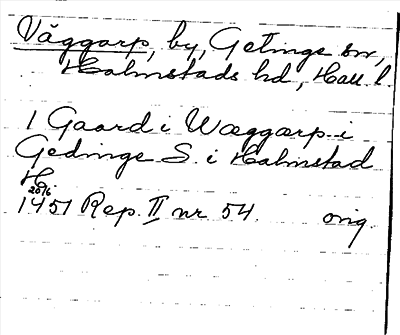 Väggarp, by, Getinge sn,
Halmstads hd, Hall. l.
1 Gaard i Wæggærp i
Gedinge S. i Halmstad
H.
20/6
1451 Rep. II nr 54. orig.